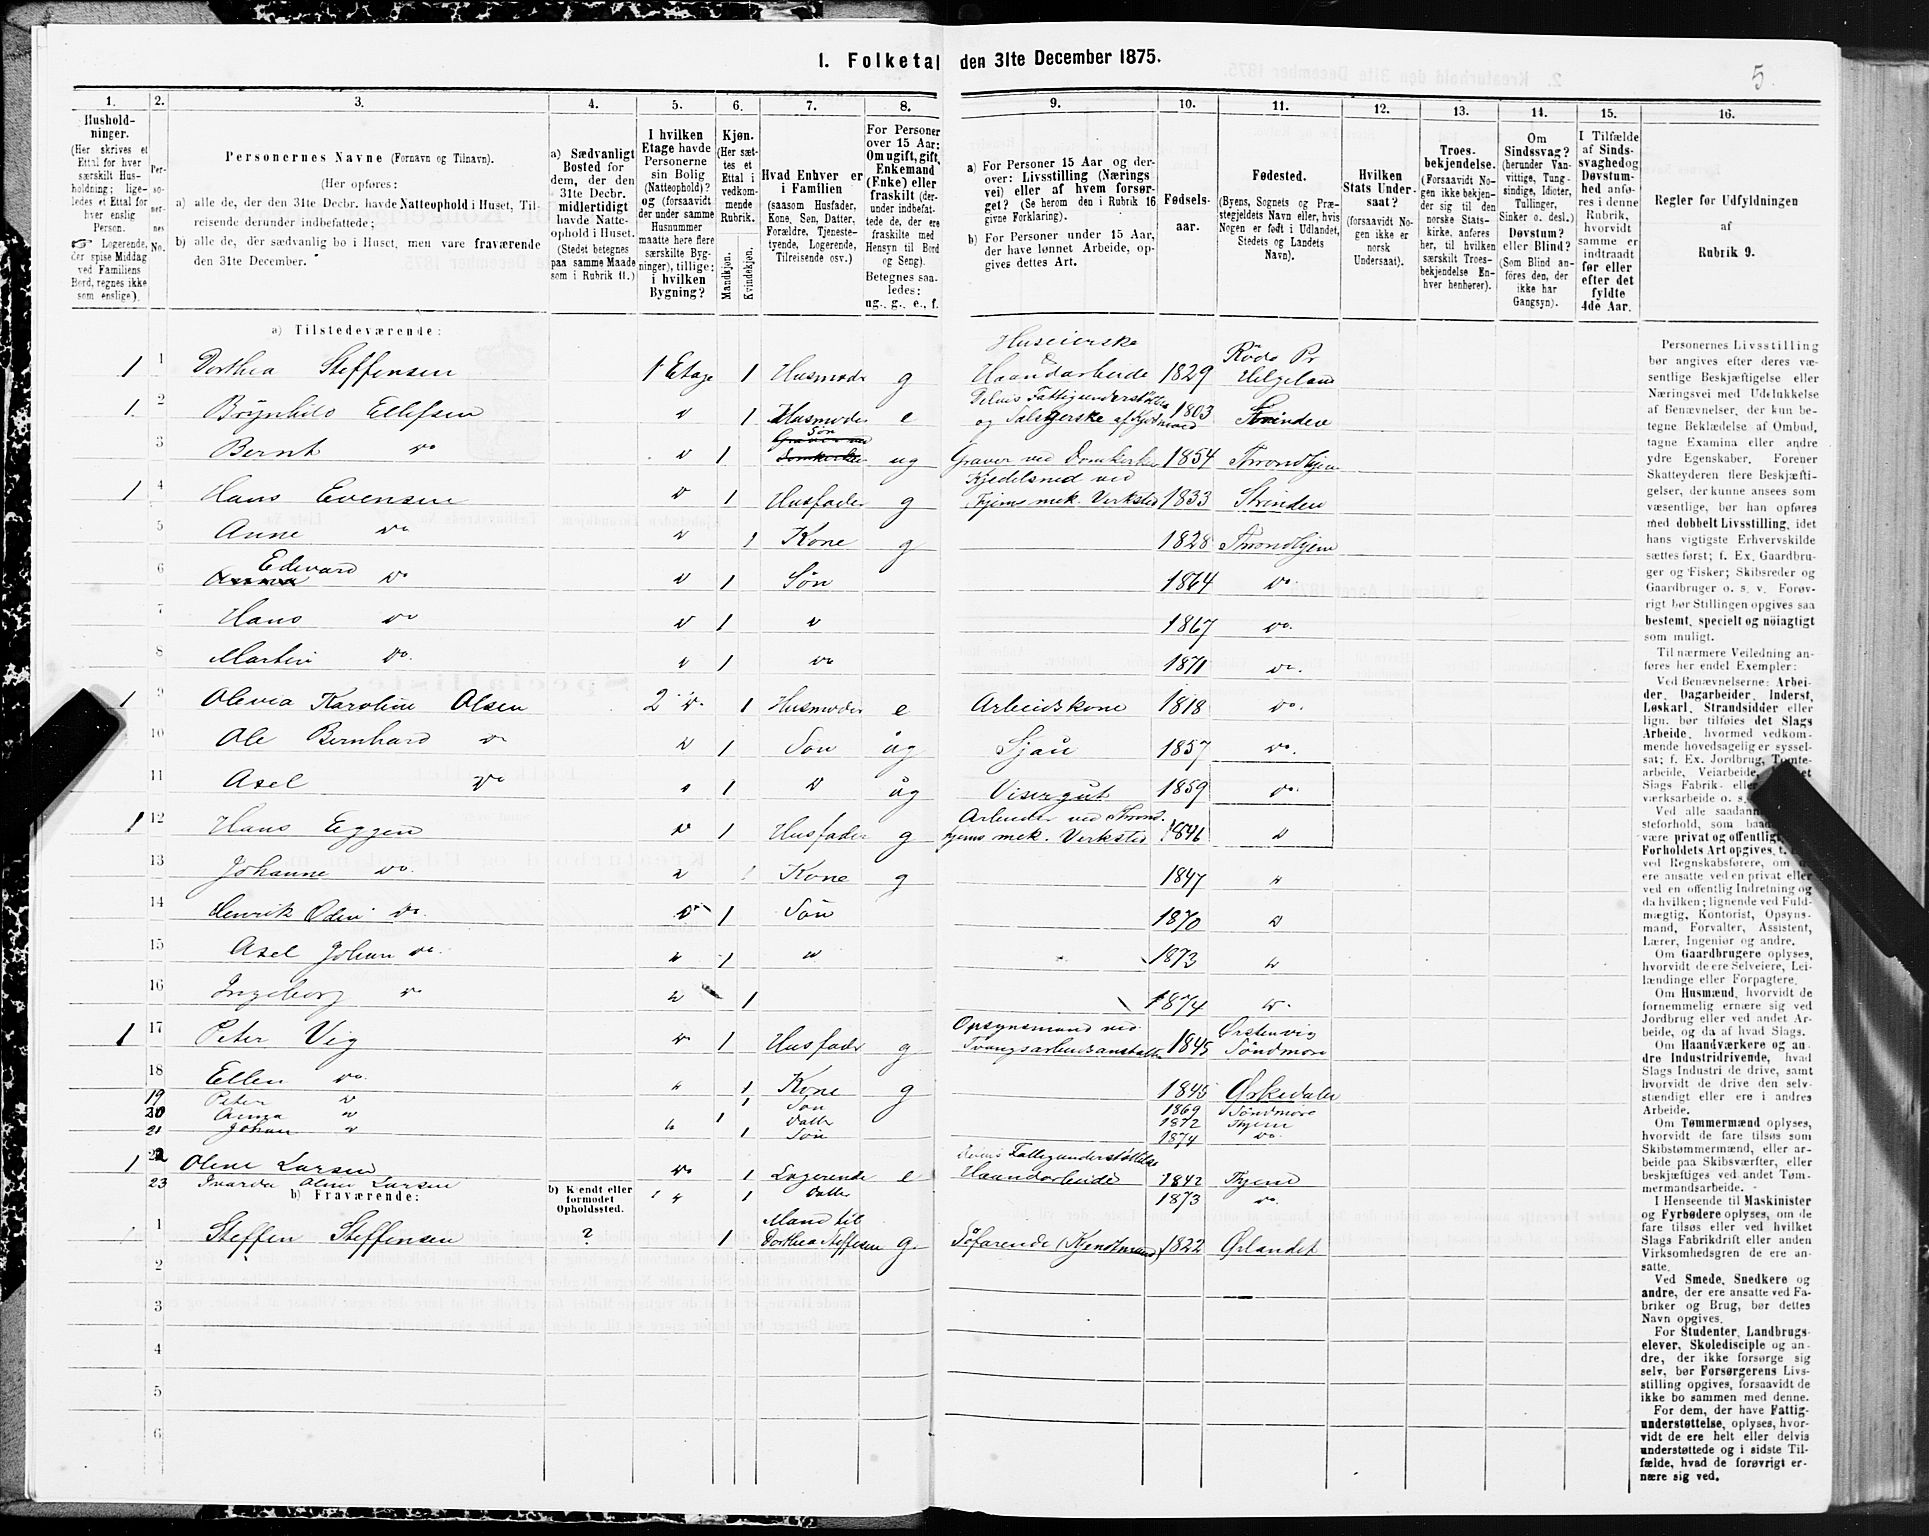 1. Folketal den 31te December 1875.
5
1. 2. 3. 4. 5. 6. 7. 8. 9. 10. 11. 12. 13. 14. 15. 16.
Hushold-
ninger.
(Her skrives et
Ettal for hver
særskilt Hus-
holdning; lige-
ledes et Ettal for
hver enslig
Person.
☞ Logerende,
der spise Middag
ved Familiens
Bord, regnes ikke
som enslige).
Per-
so-
ner-
nes
No.
Personernes Navne (Fornavn og Tilnavn).
(Her opføres:
a) alle de, der den 31te Decbr. havde Natteophold i Huset, Til-
reisende derunder indbefattede;
b) alle de, der sædvanlig bo i Huset, men vare fraværende
den 31te December.
a) Sædvanligt
Bosted for
dem, der den
31te Decbr.
midlertidigt
havde Natte-
ophold i Huset.
(Stedet betegnes
paa samme Maade
som i Rubrik 11.)
I hvilken
Etage havde
Personerne
sin Bolig
(Natteophold)?
og (forsaavidt
der under samme
Husnummer
maatte høre flere
særskilte Byg-
ninger), tillige:
i hvilken
Bygning?
Kjøn.
(Her sæt-
tes et
Ettal i
vedkom-
mende
Rubrik.
Mandkjøn.
Kvindekjøn.
Hvad Enhver er
i Familien
(saasom Husfader,
Kone, Søn, Datter,
Forældre, Tjeneste-
tyende, Logerende,
Tilreisende osv.)
For Personer
over 15 Aar:
Om ugift, gift,
Enkemand
(Enke) eller
fraskilt (der-
under indbefat-
tede de, der ere
fraskilte med
Hensyn til Bord
og Seng).
Betegnes saa-
ledes:
ug., g., e., f.
a) For Personer 15 Aar og der-
over: Livsstilling (Nærings
vei) eller af hvem forsør-
get? (Se herom den i Rubrik 16
givne Forklaring).
b) For Personer under 15 Aar,
der have lønnet Arbeide, op-
gives dettes Art.
Fødsels-
aar.
Fødested.
(Byens, Sognets og Præ-
stegjeldets Navn eller, hvis
Nogen er født i Udlandet,
Stedets og Landets
Navn).
Hvilken
Stats Under-
saat?
(forsaavidt No-
gen ikke er
norsk
Undersaat).
Troes-
bekjendelse.
(Forsaavidt No-
gen ikke bekjen-
der sig til den
norske Stats-
kirke, anføres
her, til hvilken
særskilt Troes-
bekjendelse En-
hver henhører).
Om
Sindssvag?
(herunder Van-
vittige, Tung-
sindige, Idioter,
Tullinger,
Sinker o. desl.)
Døvstum?
eller Blind?
(Som Blind an-
føres den, der
ikke har
Gangsyn).
I Tilfælde
af Sinds-
svaghed og
Døvstum-
hed anfø-
res i denne
Rubrik,
hvorvidt
samme er
indtraadt
før eller
efter det
fyldte
4de Aar.
Regler for Udfyldningen
af
Rubrik 9.
a) Tilstedeværende:
Huseierske
1 1 Dorthea Steffensen 1 Etage 1 Husmoder g Haandarbeide 1829 Rödö Pr Helgeland
Delvis Fattigunderstöttelse
1 2 Brÿnhild Ellefsen 1 Husmoder e og 1803 Strinden
3 Bernt do 1 Søn ug Graver ved Domkirken 1854 Throndhjem
Kjedelsmed ved
1 4 Hans Evensen 1 Husfader g Thjems mek. Verksted 1833 Strinden
5 Anne do 1 Kone g 1828 Throndhjem
6 Edevard do 1 Søn 1864 do.
7 Hans do 1 1867 do.
8 Martin do. 1 do 1871 do.
1 9 Olevia Karoline Olsen 2 do. 1 Husmoder e Arbeidskone 1818 do.
10 Ole Bernhard do 1 Søn ug Sjau 1857 do.
11 Axel do ug Visergut 1859 do.
Arbeider ved Thrond.
1 12 Hans Eggen 1 Husfader g hjems mek. Verksted 1846
13 Johanne do. 1 Kone g 1847
14 Henrik Odin do. 1 Søn 1870
15 Axel Johan do. 1 1873
16 Ingeborg do 1 1874
Opsynsmand ved Ørstenvig
1 17 Peter Vig 1 Husfader g Tvangsarbeidsanstalten 1845 Söndmöre
18 Ellen do. 1 Kone g 1845 Ørkedalen
19 Peter 1 Søn 1869 Söndmöre
20 Anna 1 Datter 1872 Thjem
21 Johan 1 Søn 1874 do.
Delvis Fattigunderstöttelse
1 22 Oline Larsen do 1 Logerende e Haandarbeide 1842 Thjem
23 Larsen 1 Datter 1873 do.
b) Fraværende:
b) Kendt eller
formodet
Opholdssted.
Mand til
1 Steffen Steffensen ? 1 Dorthea Steffensen g. Söfarende (Kjendtmand) 1822 Ørlandet
2
3
4
5
6
Personernes Livsstilling
bør angives efter deres væ-
sentlige Beskjæftigelse eller
Næringsvei med Udelukkelse
af Benævnelser, der kun be-
tegne Beklædelse af Ombud,
tagne Examina eller andre
ydre Egenskaber. Forener
Skatteyderen flere Beskjæfti-
gelser, der kunne ansees som
væsentlige, bør han opføres
med dobbelt Livsstilling, idet
hans vigtigste Erhvervskilde
sættes først; f. Ex. Gaardbru-
ger og Fisker; Skibsreder og
Gaardbruger o. s. v. Forøv-
rigt bør Stillingen opgives saa
bestemt, specielt og nöiagtigt
som muligt.
Til nærmere Veiledning an-
føres her endel Exempler:
Ved Benævnelserne: Arbei-
der, Dagarbeider, Inderst,
Løskarl, Strandsidder eller
lign. bør tilføies det Slags
Arbeide, hvormed vedkom-
mende hovedsagelig er syssel-
sat; f. Ex. Jordbrug, Tomte-
arbeide, Veiarbeide,
Slags Fabrik- eller
værksarbeide o. s.
Ved alle saadanne
steforhold, som
være privat og offentligt,
Forholdets Art opgives, t.
ved Regnskabsførere, om
ere ansatte ved en privat eller
ved en offentlig Indretning og
da hvilken; lignende ved Fuld-
mægtig, Kontorist, Opsyns-
mand, Forvalter, Assistent,
Lærer, Ingeniør og andre.
Om Gaardbrugere oplyses,
hvorvidt de ere Selveiere, Lei-
lændinge eller Forpagtere.
Om Husmænd, hvorvidt de
fornemmelig ernære sig ved
Jordbrug eller ved andet Ar-
beide, og da af hvad Slags.
Om Haandværkere og an-
dre Industridrivende, hvad
Slags Industri de drive, samt
hvorvidt de drive den selv-
stændigt eller ere i andres
Arbeide.
Om Tømmermænd oplyses,
hvorvidt de fare tilsøs som
Skibstømmermænd, eller ar-
beide paa Skibsværfter, eller
beskjæftiges ved andet Tøm-
mermandsarbeide.
I Henseende til Maskinister
og Fyrbødere oplyses, om de
fare tilsøs eller ved hvilket
Slags Fabrikdrift eller anden
Virksomhedsgren de ere an-
satte.
Ved Smede, Snedkere og
andre, der ere ansatte ved Fa-
briker og Brug, bør dettes
Navn opgives.
For Studenter, Landbrugs-
elever, Skoledisciple og an-
dre, der ikke forsørge sig
selv, bør Forsørgerens Livs-
stilling opgives, forsaavidt de
ikke bo sammen med denne.
For dem, der have Fattig-
understøttelse, oplyses, hvor-
vidt de ere helt eller delvis
understøttede og i sidste Til-
fælde, hvad de forøvrigt er-
nære sig ved.